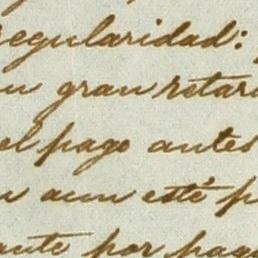 regularidad:
gran retar
el pago antes
aun esté p
por pag